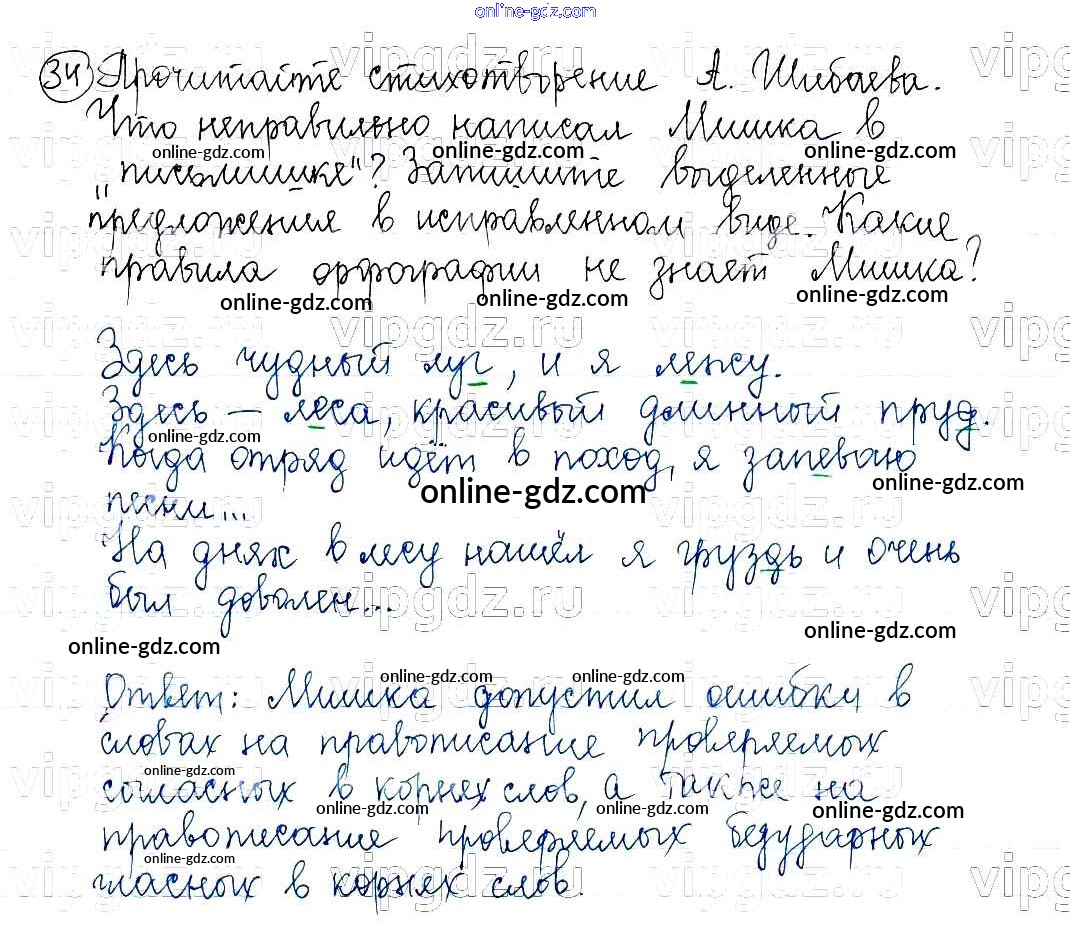 online-gdz.com
34 Прочитайте стихотворение А. Шибаева.
Что неправильно написал Мишка в
„письмишке"? Запишите выделенные
предложения в исправленном виде. Какие
правила орфографии не знает Мишка?
Здесь чудный луг, и я лежу.
Здесь – леса, красивый длинный пруд.
Когда отряд идёт в поход, я запеваю
песни...
На днях в лесу нашёл я груздь и очень
был доволен...
Ответ: Мишка допустил ошибки в
словах на правописание проверяемых
согласных в корнях слов, а также на
правописание проверяемых безударных
гласных в корнях слов.